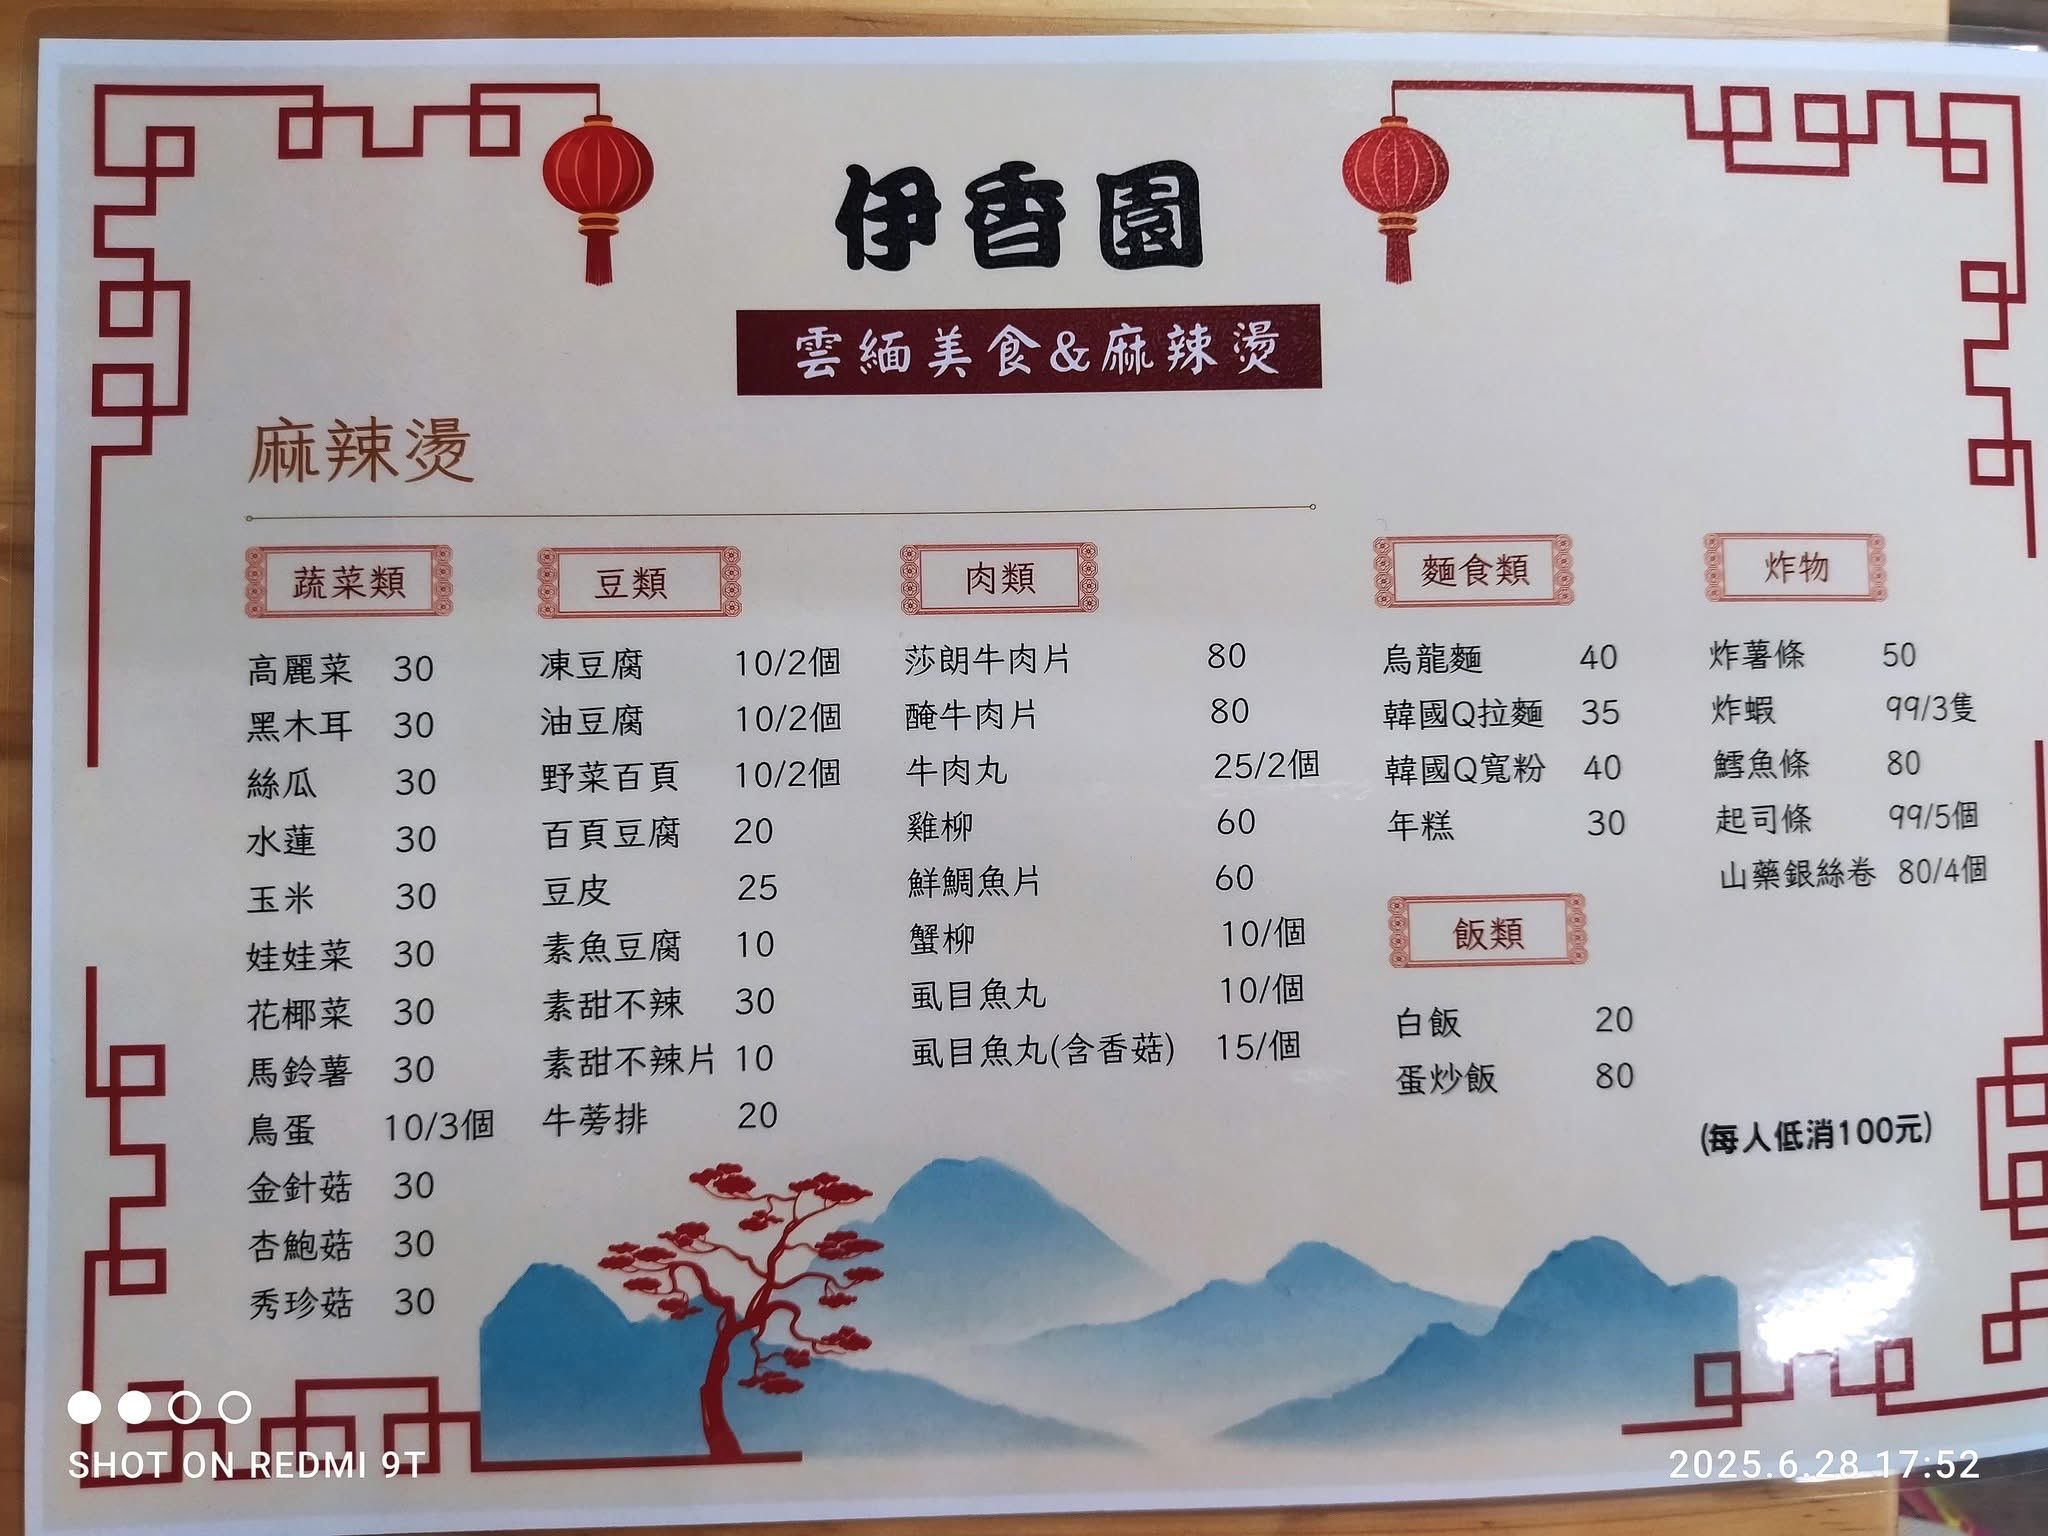 伊香園
雲緬美食&麻辣燙
麻辣燙
蔬菜類
高麗菜 30
黑木耳 30
絲瓜 30
水蓮 30
玉米 30
娃娃菜 30
花椰菜 30
馬鈴薯 30
鳥蛋 10/3個
金針菇 30
杏鮑菇 30
秀珍菇 30
豆類
凍豆腐 10/2個
油豆腐 10/2個
野菜百頁 10/2個
百頁豆腐 20
豆皮 25
素魚豆腐 10
素甜不辣 30
素甜不辣片 10
牛蒡排 20
肉類
莎朗牛肉片 80
醃牛肉片 80
牛肉丸 25/2個
雞柳 60
鮮鯛魚片 60
蟹柳 10/個
虱目魚丸 10/個
虱目魚丸(含香菇) 15/個
麵食類
烏龍麵 40
韓國Q拉麵 35
韓國Q寬粉 40
年糕 30
飯類
白飯 20
蛋炒飯 80
炸物
炸薯條 50
炸蝦 99/3隻
鱈魚條 80
起司條 99/5個
山藥銀絲卷 80/4個
(每人低消100元)
SHOT ON REDMI 9T
2025.6.28 17:52